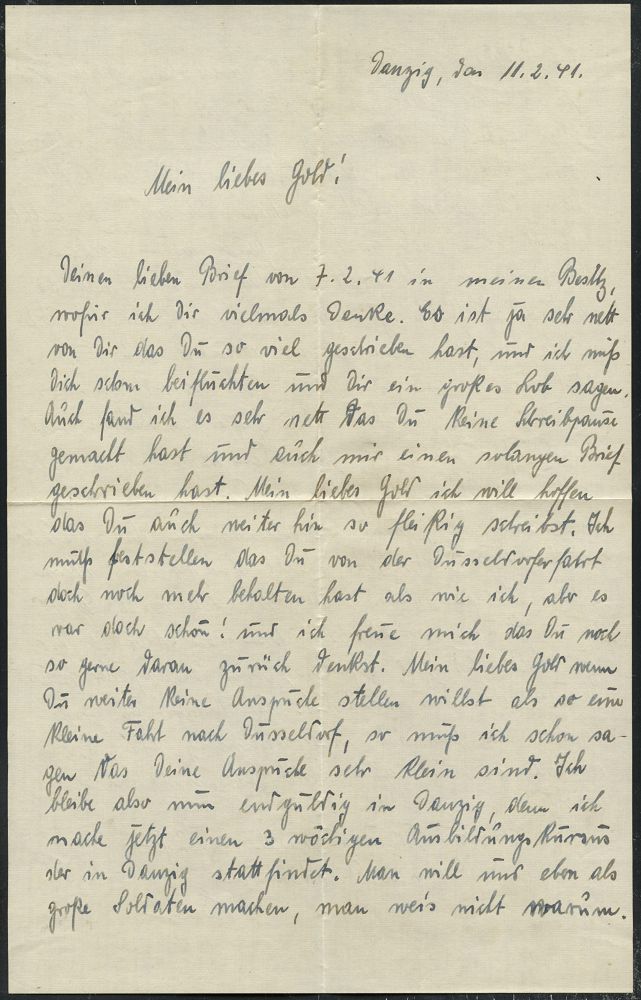 Danzig, den 11.2.41.
Mein liebes Gold!
Deinen lieben Brief von 7.2.41 in meinen Besitz,
wofür ich Dir vielmals Danke. Es ist ja sehr nett
von Dir das Du so viel geschrieben hast, und ich muß
Dich schon beifluchten und Dir ein großes Lob sagen.
Auch fand ich es sehr nett das Du keine Schreibpause
gemacht hast und auch mir einen solangen Brief
geschrieben hast. Mein liebes Gold ich will hoffen
das Du auch weiter hin so fleißig schreibst. Ich
muß feststellen das Du von der Düsseldorferfahrt
doch noch mehr behalten hast als wie ich, aber es
war doch schön! und ich freue mich das Du noch
so gerne daran zurück denkst. Mein liebes Gold wenn
Du weiter keine Ansprüche stellen willst als so eine
kleine Faht nach Düsseldorf, so muß ich schon sa-
gen das Deine Ansprüche sehr klein sind. Ich
bleibe also nun endguldig in Danzig, denn ich
mache jetzt einen 3 wöchigen Ausbildungskursus
der in Danzig stattfindet. Man will uns eben als
große Soldaten machen, man weis nicht warum.